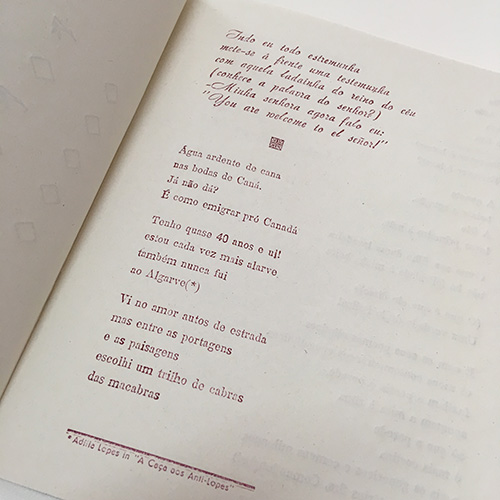 Indo eu todo estremunha
mete-se à frente uma testemunha
com aquela ladainha do reino do céu
(conhece a palavra do senhor?)
-Minha senhora agora falo eu:
"You are welcome to el señor!"
Água ardente de cana
nas bodas de Caná.
Já não dá?
É como emigrar pró Canadá
Tenho quase 40 anos e ui!
estou cada vez mais alarve
também nunca fui
ao Algarve(*)
Vi no amor autos de estrada
mas entre as portagens
e as paisagens
escolhi um trilho de cabras
das macabras
* Adília Lopes in "A Caça aos Anti-Lopes"